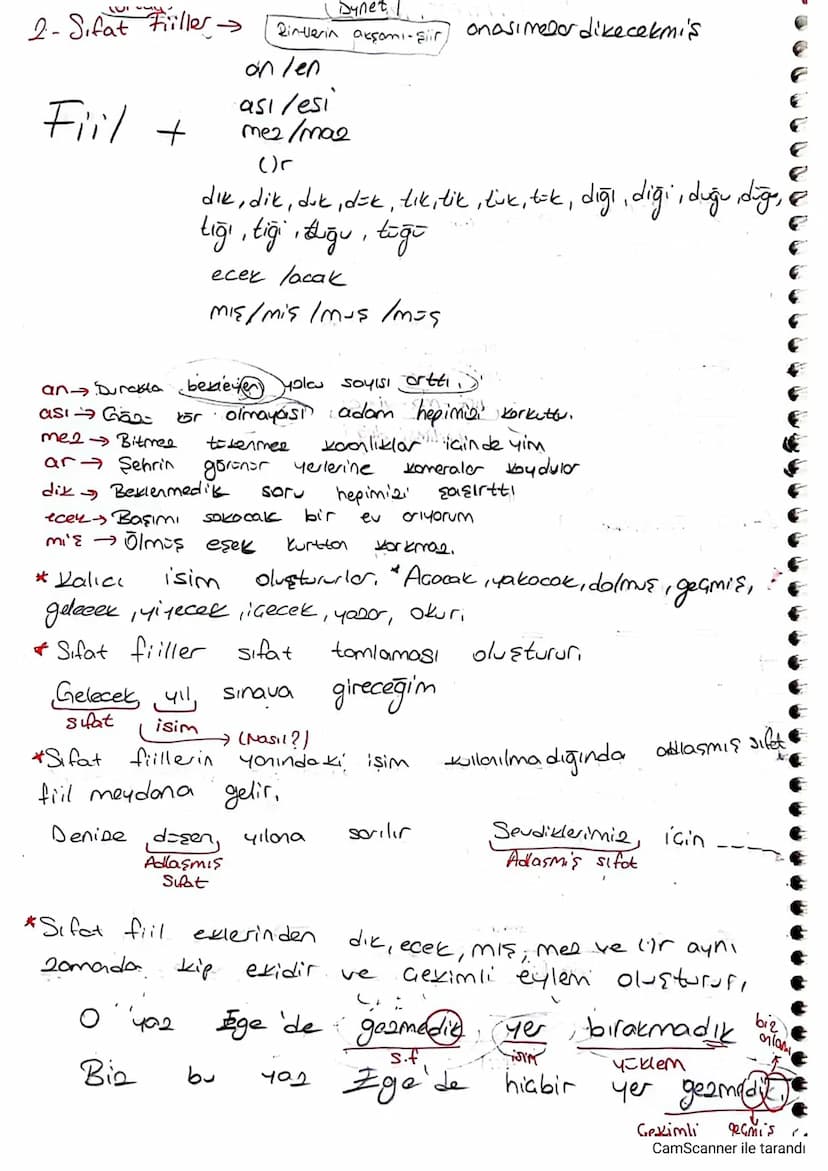 Dynet
2- Sıfat Fiiller → Zinüerin akşamı-şiir anasımezar dikecekmiş
an/en
ası/esi
Fiil + mez/maz
()r
dık, dik, duk, dük, tık, tik, tuk, tük, dığı, diği, duğu, düğü,
tığı, tiği, tuğu, tüğü
ecek /acak
mış/miş /muş /müş
an → Durakta bekleyen yolcu sayısı arttı.
ası → Gözü kör olmayası adam hepimizi korkuttu.
mez → Bitmez tükenmez karanlıklar içindeyim
ar → Şehrin görünür yerlerine kameralar koydular
dik → Beklenmedik soru hepimizi şaşırttı
ecek → Başımı sokacak bir ev arıyorum
miş → Ölmüş eşek kurttan korkmaz.
* Kalıcı isim oluştururlar. * Açacak, yakacak, dolmuş, geçmiş,
gelecek, yiyecek, içecek, yazar, okur.
* Sıfat fiiller sıfat tamlaması oluşturur.
Gelecek yıl sınava gireceğim
sıfat isim
→ (Nasıl?)
* Sıfat fiillerin yanındaki isim kullanılmadığında adlaşmış sıfat
fiil meydana gelir.
Denize düşen yılana sarılır Sevdiklerimiz için ----
Adlaşmış Sıfat Adlaşmış sıfat
* Sıfat fiil eklerinden dık, ecek, mış, mez ve ()r aynı
zamanda kip ekidir ve çekimli eylem oluşturur.
O yaz Ege'de gezmedik yer bırakmadık biz
s.f isim yüklem
Biz bu yaz Ege'de hiçbir yer gezmedik.
Çekimli geçmiş
CamScanner ile tarandı